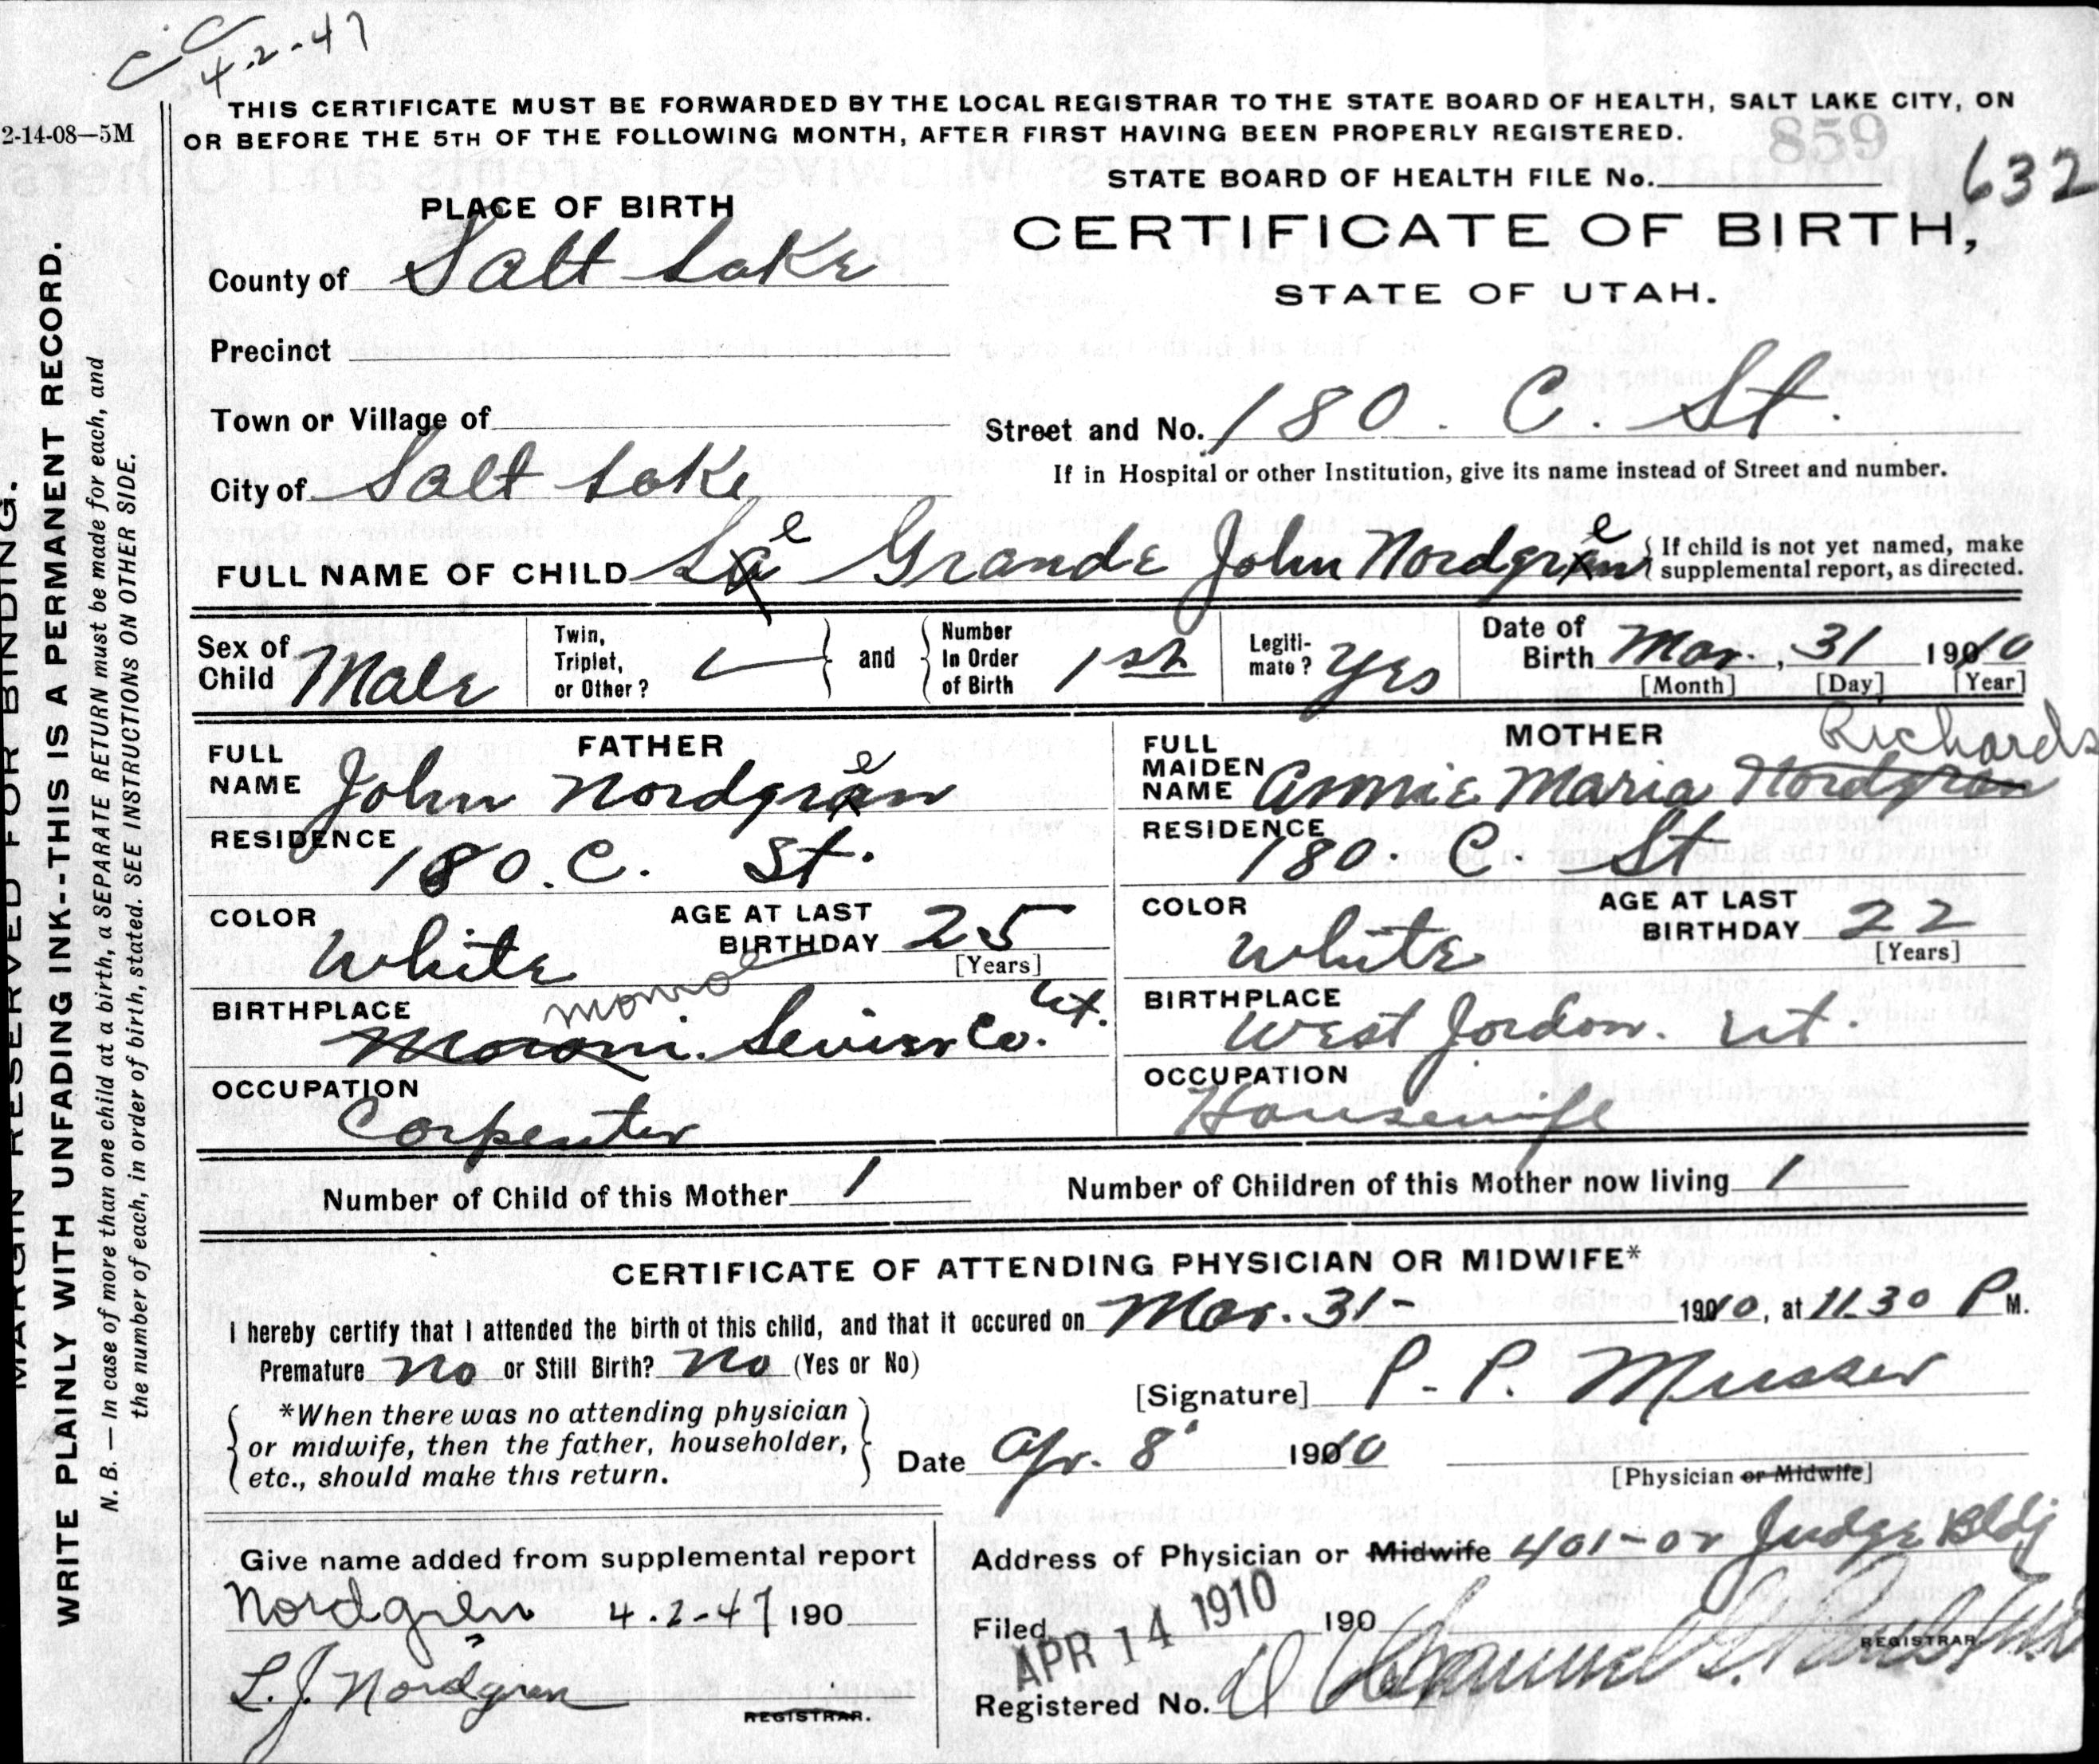 CC
4-2-47
2-14-08—5M
THIS CERTIFICATE MUST BE FORWARDED BY THE LOCAL REGISTRAR TO THE STATE BOARD OF HEALTH, SALT LAKE CITY, ON
OR BEFORE THE 5TH OF THE FOLLOWING MONTH, AFTER FIRST HAVING BEEN PROPERLY REGISTERED.
859
STATE BOARD OF HEALTH FILE No.
632
CERTIFICATE OF BIRTH,
STATE OF UTAH.
PLACE OF BIRTH
County of Salt Lake
Precinct
Town or Village of
Street and No. 180. C. St.
City of Salt Lake
If in Hospital or other Institution, give its name instead of Street and number.
FULL NAME OF CHILD Le Grande John Nordgren
{ If child is not yet named, make
supplemental report, as directed.
Sex of Child Male
Twin, Triplet, or Other?
and
Number In Order of Birth 1st
Legiti-mate? Yes
Date of Birth Mar., 31 1910
[Month] [Day] [Year]
FATHER
FULL NAME John Nordgren
RESIDENCE 180. C. St.
COLOR White
AGE AT LAST BIRTHDAY 25
[Years]
BIRTHPLACE Monroe
Moroni. Sevier Co. Ut.
OCCUPATION Carpenter
MOTHER
FULL MAIDEN NAME Annie Maria Nordgran Richards
RESIDENCE 180. C. St
COLOR White
AGE AT LAST BIRTHDAY 22
[Years]
BIRTHPLACE West Jordon. Ut.
OCCUPATION Housewife
Number of Child of this Mother 1
Number of Children of this Mother now living 1
CERTIFICATE OF ATTENDING PHYSICIAN OR MIDWIFE*
I hereby certify that I attended the birth of this child, and that it occured on Mar. 31- 1910, at 11.30 P M.
Premature No or Still Birth? No (Yes or No)
[Signature] P. P. Musser
*When there was no attending physician
or midwife, then the father, householder,
etc., should make this return.
Date Apr. 8 1910
[Physician or Midwife]
Give name added from supplemental report
Nordgren 4-2-47 190
L. J. Nordgren
REGISTRAR.
Address of Physician or Midwife 401-02 Judge Bldg
Filed APR 14 1910 190
REGISTRAR
Registered No.
MARGIN RESERVED FOR BINDING.
WRITE PLAINLY WITH UNFADING INK--THIS IS A PERMANENT RECORD.
N. B. — In case of more than one child at a birth, a SEPARATE RETURN must be made for each, and
the number of each, in order of birth, stated. SEE INSTRUCTIONS ON OTHER SIDE.